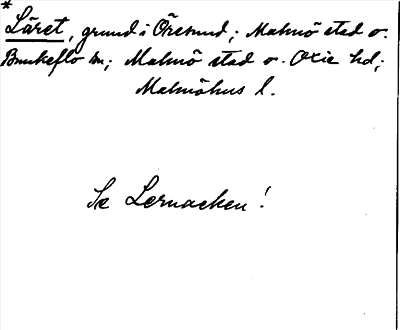 *
Läret, grund i Öresund; Malmö stad o.
Bunkeflo sn; Malmö stad o. Oxie hd;
Malmöhus l.
Se Lernacken!